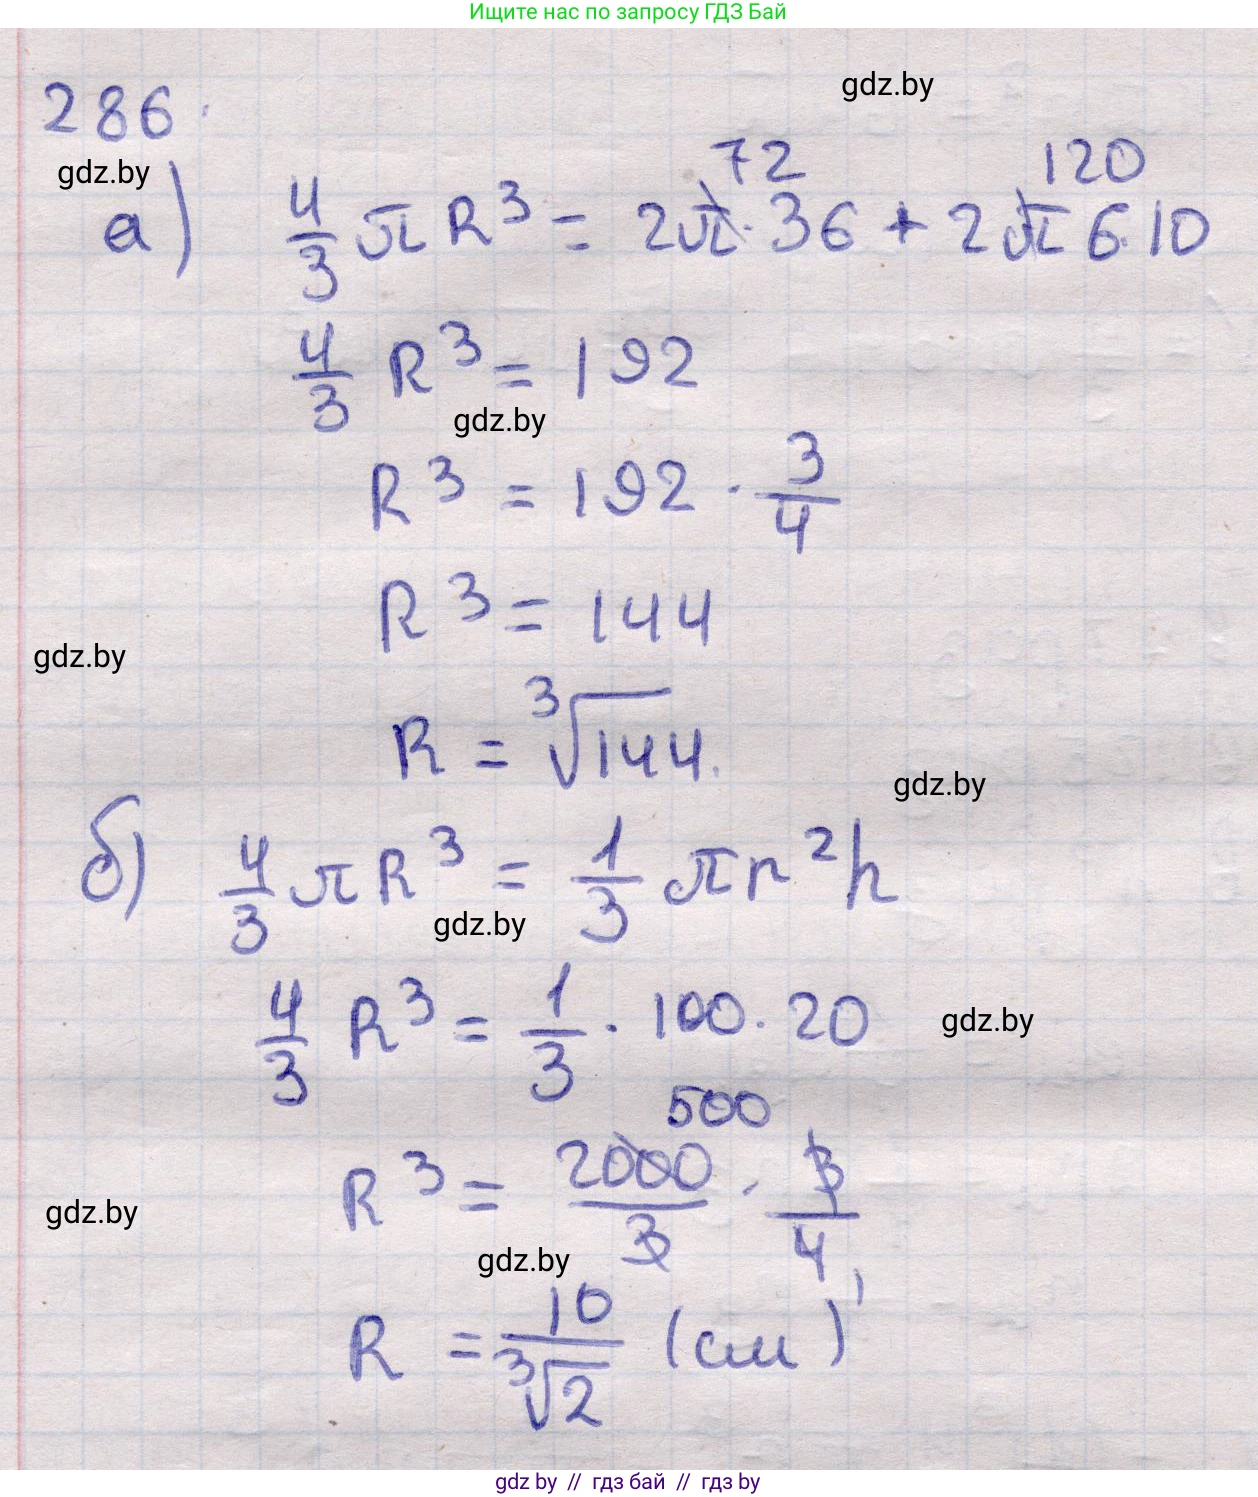 Ищите нас по запросу ГДЗ Бай
gdz.by
286.
gdz.by
72 120
а) 4/3 πR³ = 2π·36 + 2π6·10
4/3 R³ = 192
gdz.by
R³ = 192 · 3/4
R³ = 144
gdz.by
R = ∛144.
gdz.by
б) 4/3 πR³ = 1/3 πr²h
gdz.by
4/3 R³ = 1/3 · 100 · 20
gdz.by
500
R³ = 2000/3 · 3/4,
gdz.by
gdz.by
R = 10/∛2 (см)
gdz by // гдз бай // гдз by